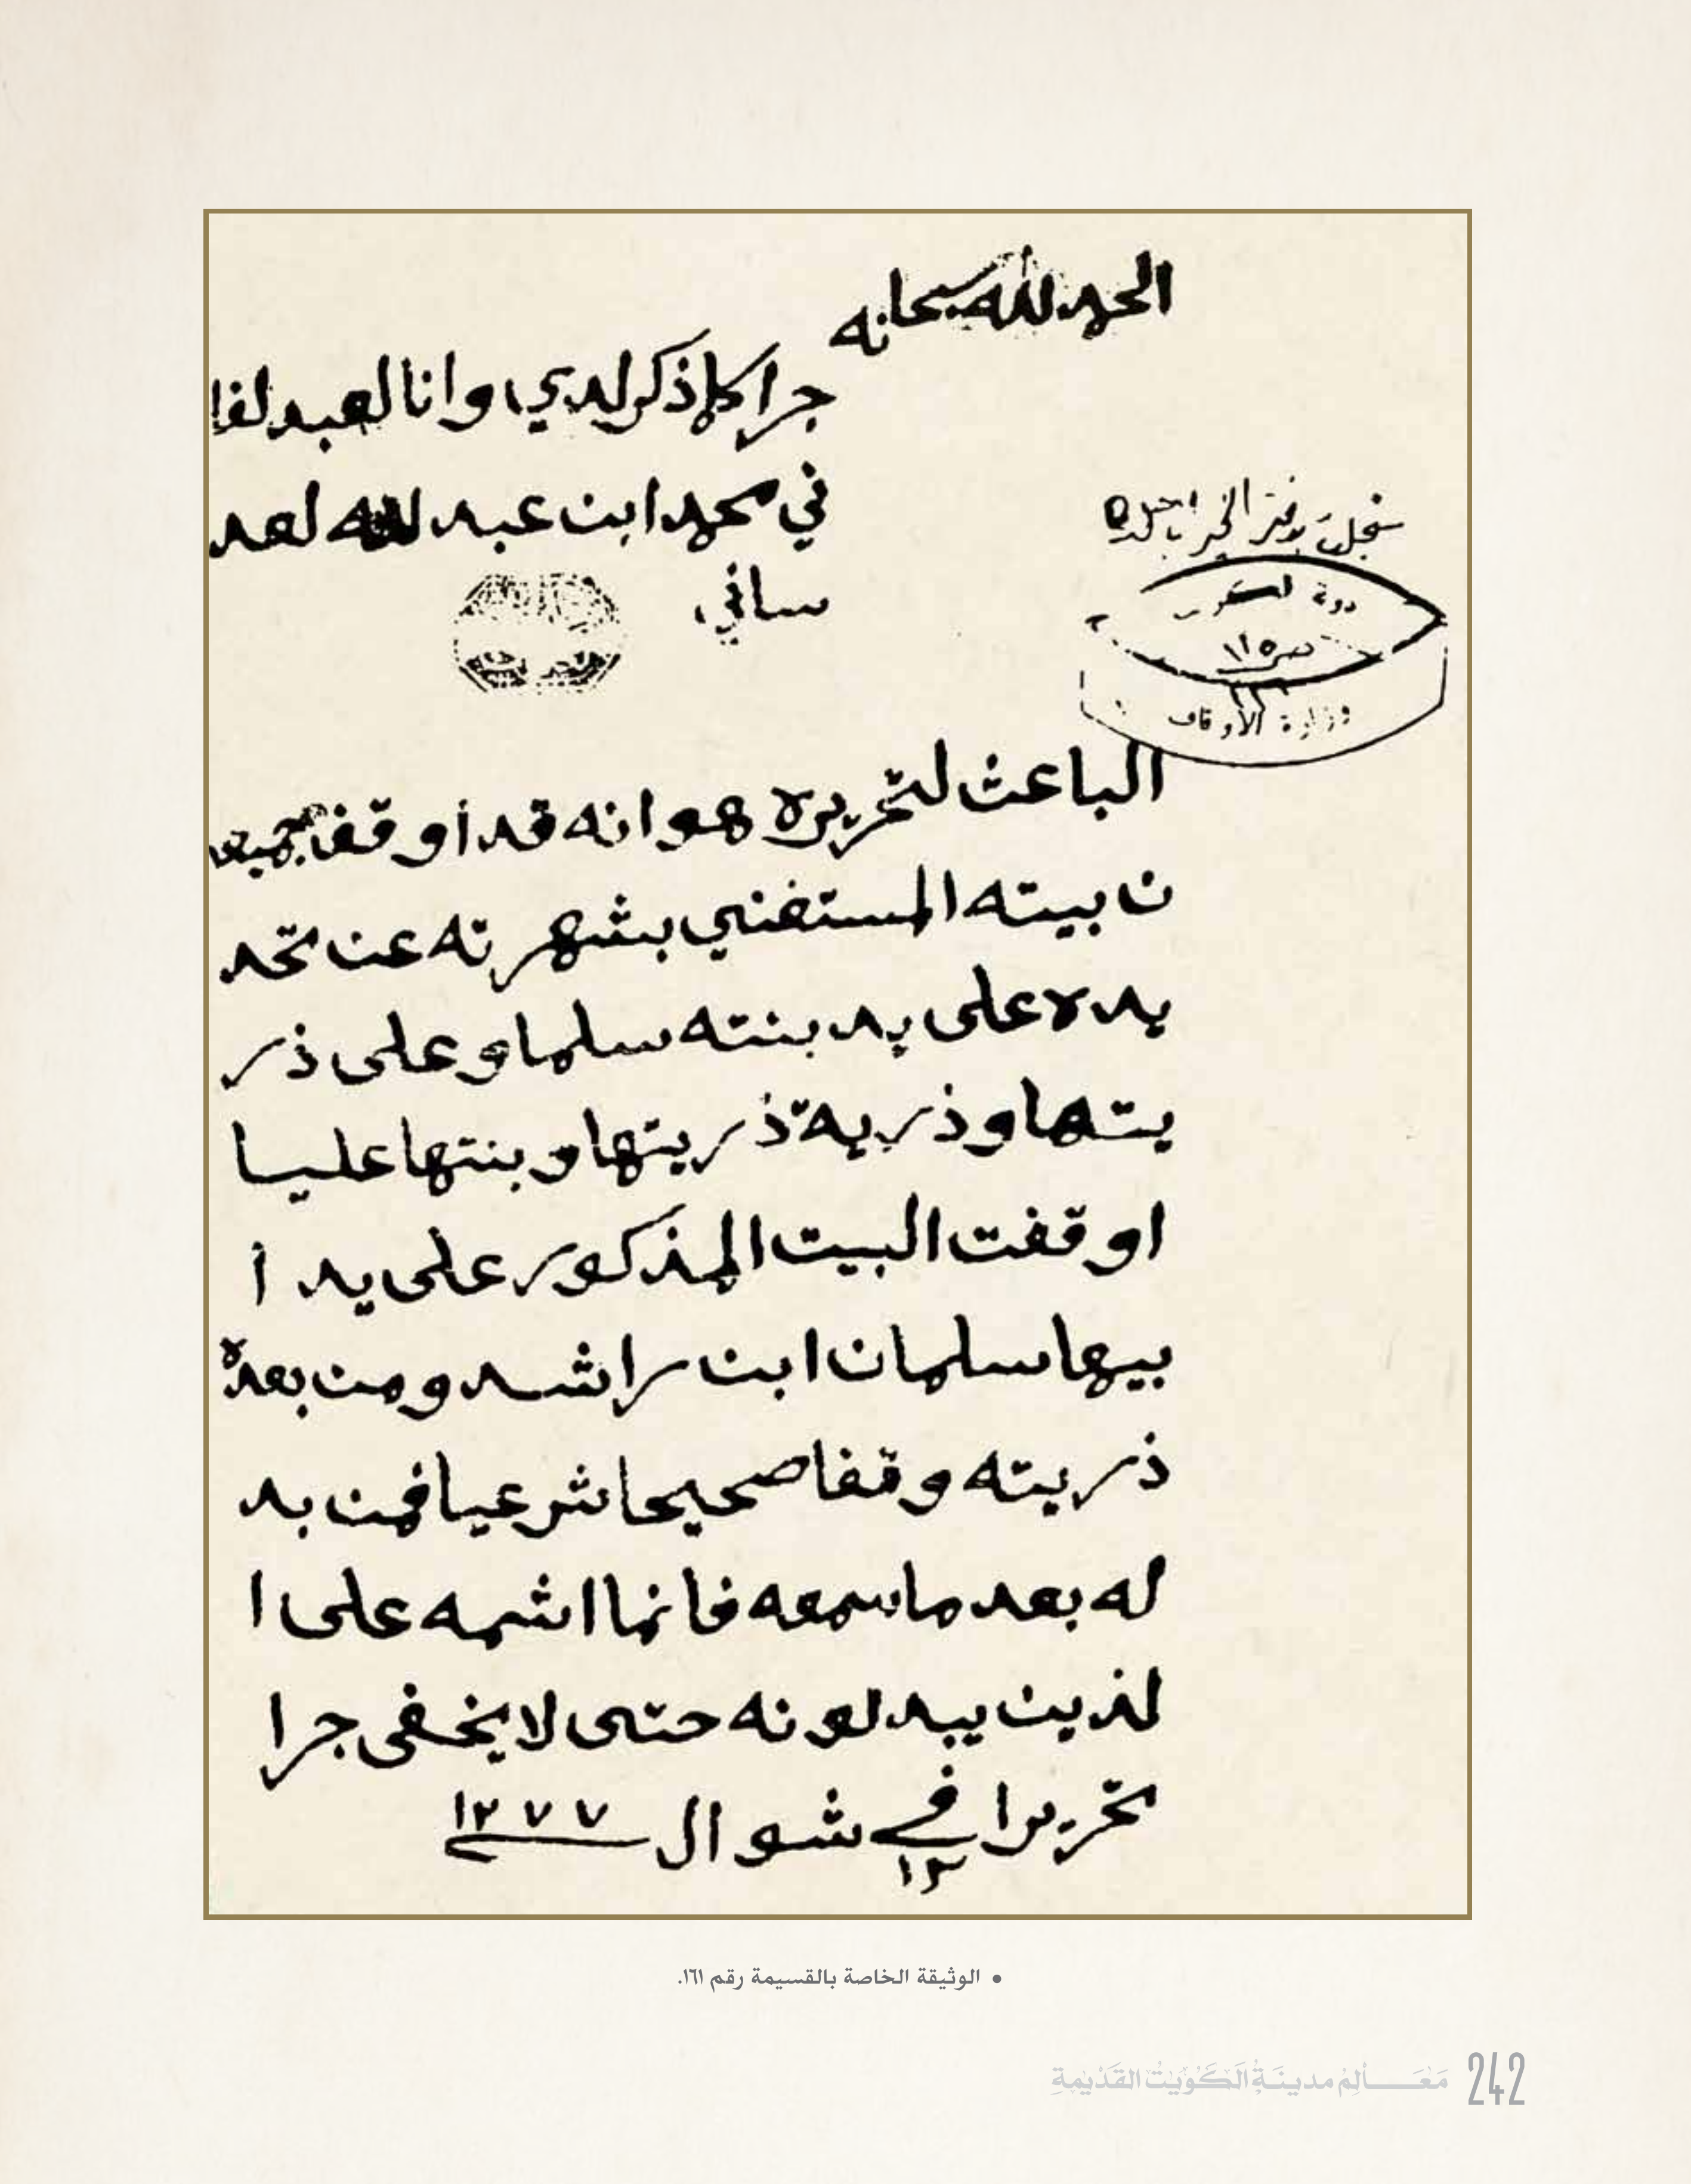 الحمد لله سبحانه
جرا كلما ذكر لدي وانا لعبد لفا
ني محمد ابن عبد لله لعد
ساني
سجل بدفتر الخير
دولة الكويت
ص ١١٥
وزارة الأوقاف
الباعث لتحريره هو انه قد أوقف
ن بيته المستغني بشهرته عن تحد
يده على يد بنته سلما وعلى ذر
يتها وذرية ذريتها وبنتها عليا
اوقفت البيت المذكور على يد أ
بيها سلمان ابن راشد ومن بعده
ذريته وقفا صحيحا شرعيا فمن بد
له بعد ما سمعه فانما اثمه على ا
لذين يبدلونه حتى لا يخفى جرا
تحريرا في ١٢ شوال ١٢٧٧
• الوثيقة الخاصة بالقسيمة رقم ١٦١.
مَعَالِمُ مدينَةِ الكُوَيْتِ القَدْيمَةِ 242